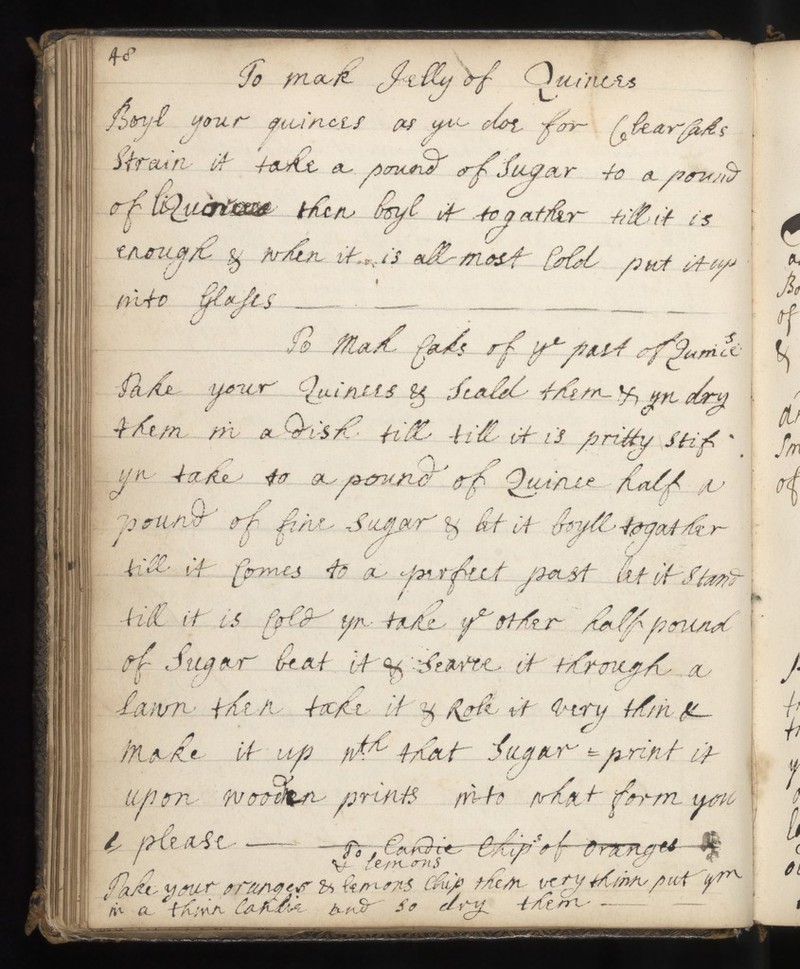 48
To mak Jelly of Quinces
Boyl your quinces as yu doe for Clear Caks
Strain it take a pound of Sugar to a pound
of liQuor then boyl it togather till it is
enough & when it is all most Cold put it up
into Glases
To Mak Caks of ye past of Quinces
Take your Quinces & Scald them & yn dry
them in a Dish till till it is pritty stif
yn take to a pound of Quince half a
pound of fine Sugar & let it boyll togather
till it Comes to a perfect past let it Stand
till it is Cold yn take ye other half pound
of Sugar beat it & Searce it through a
Lawn then take it & Role it very thin &
Make it up wth that Sugar = print it
upon wooden prints into what form you
please
To Candie Chips of oranges
& lemons
Take your oranges & lemons Chip them very thinn put ym
in a thinn Candie and so dry them